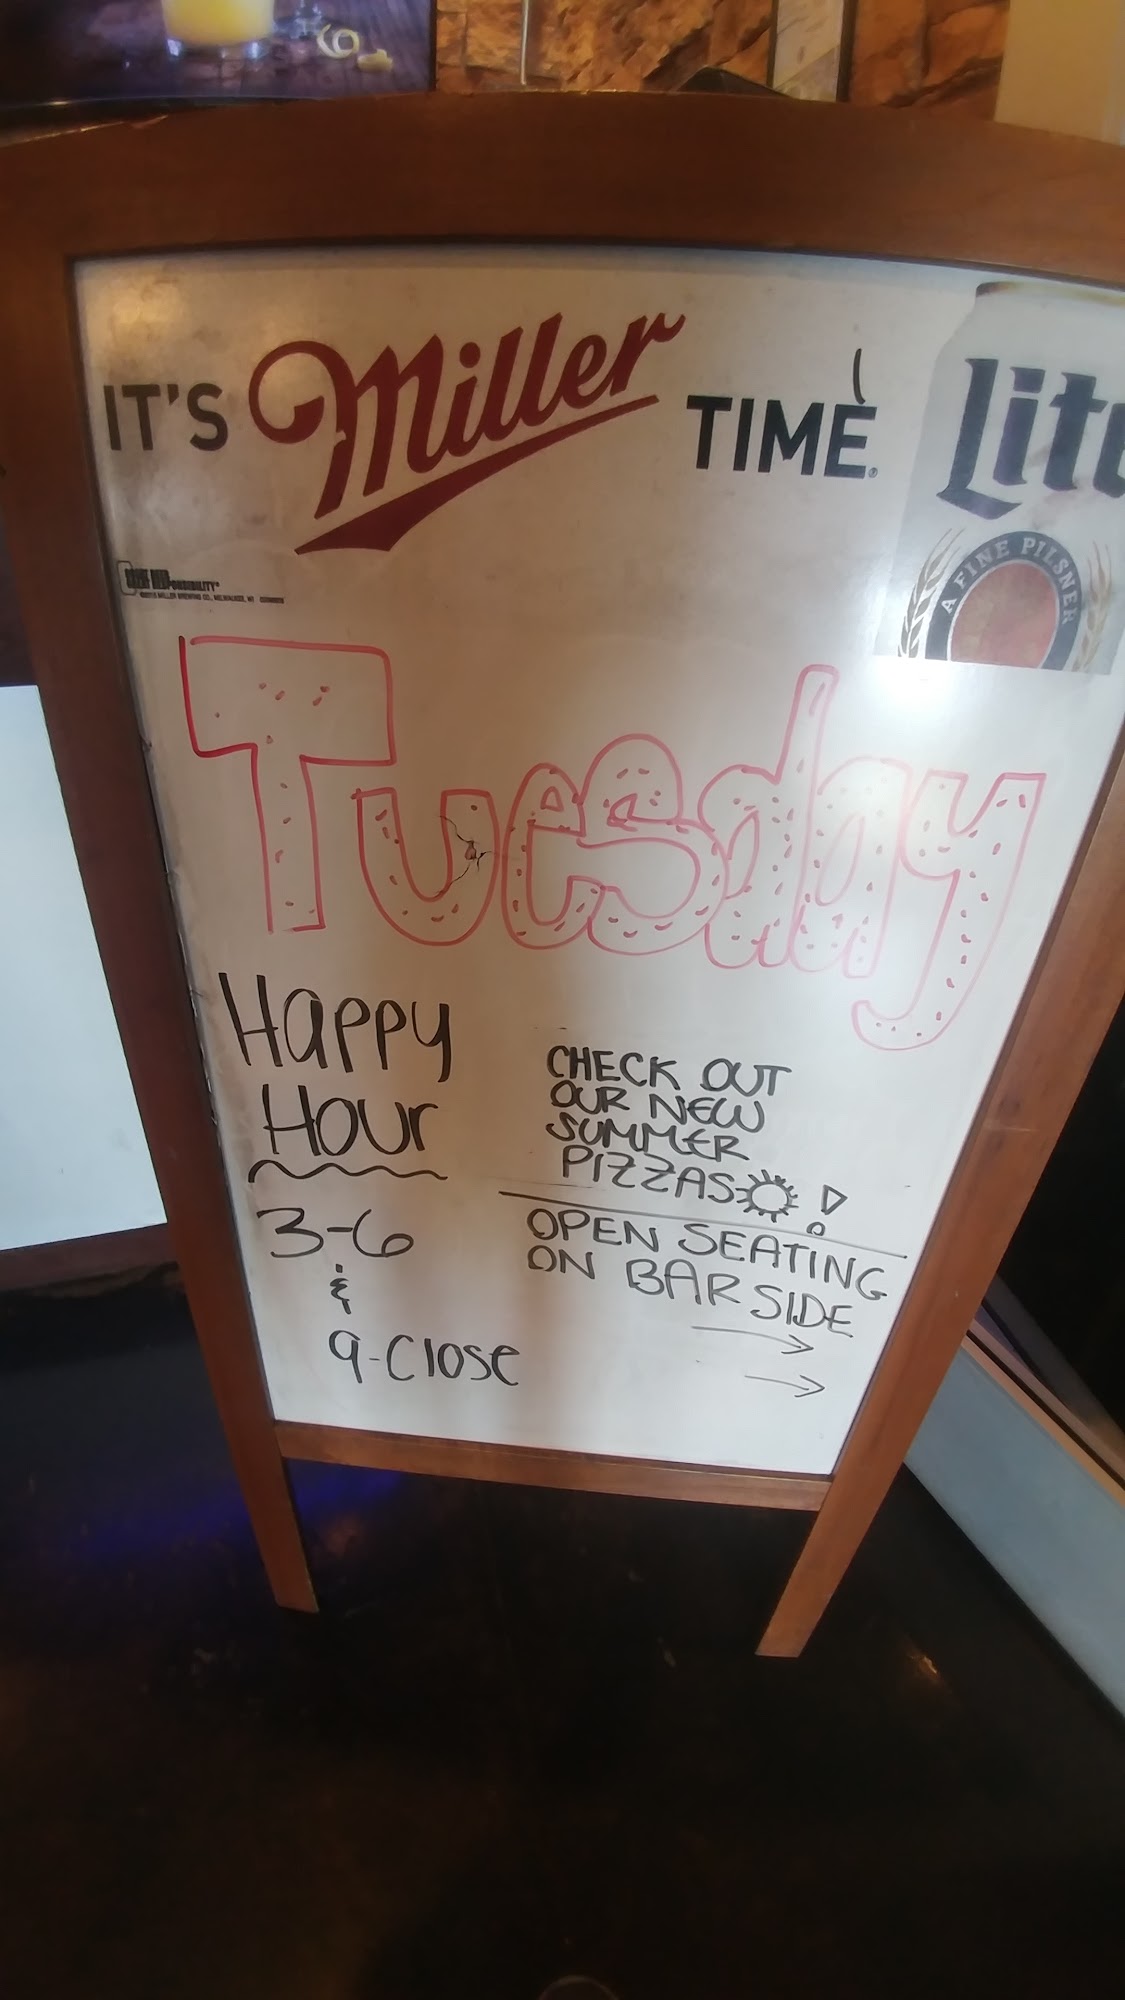 IT'S Miller TIME
Lite
A FINE PILSNER
Tuesday
Happy
Hour
3-6
&
9-Close
CHECK OUT
OUR NEW
SUMMER
PIZZAS!
OPEN SEATING
ON BAR SIDE